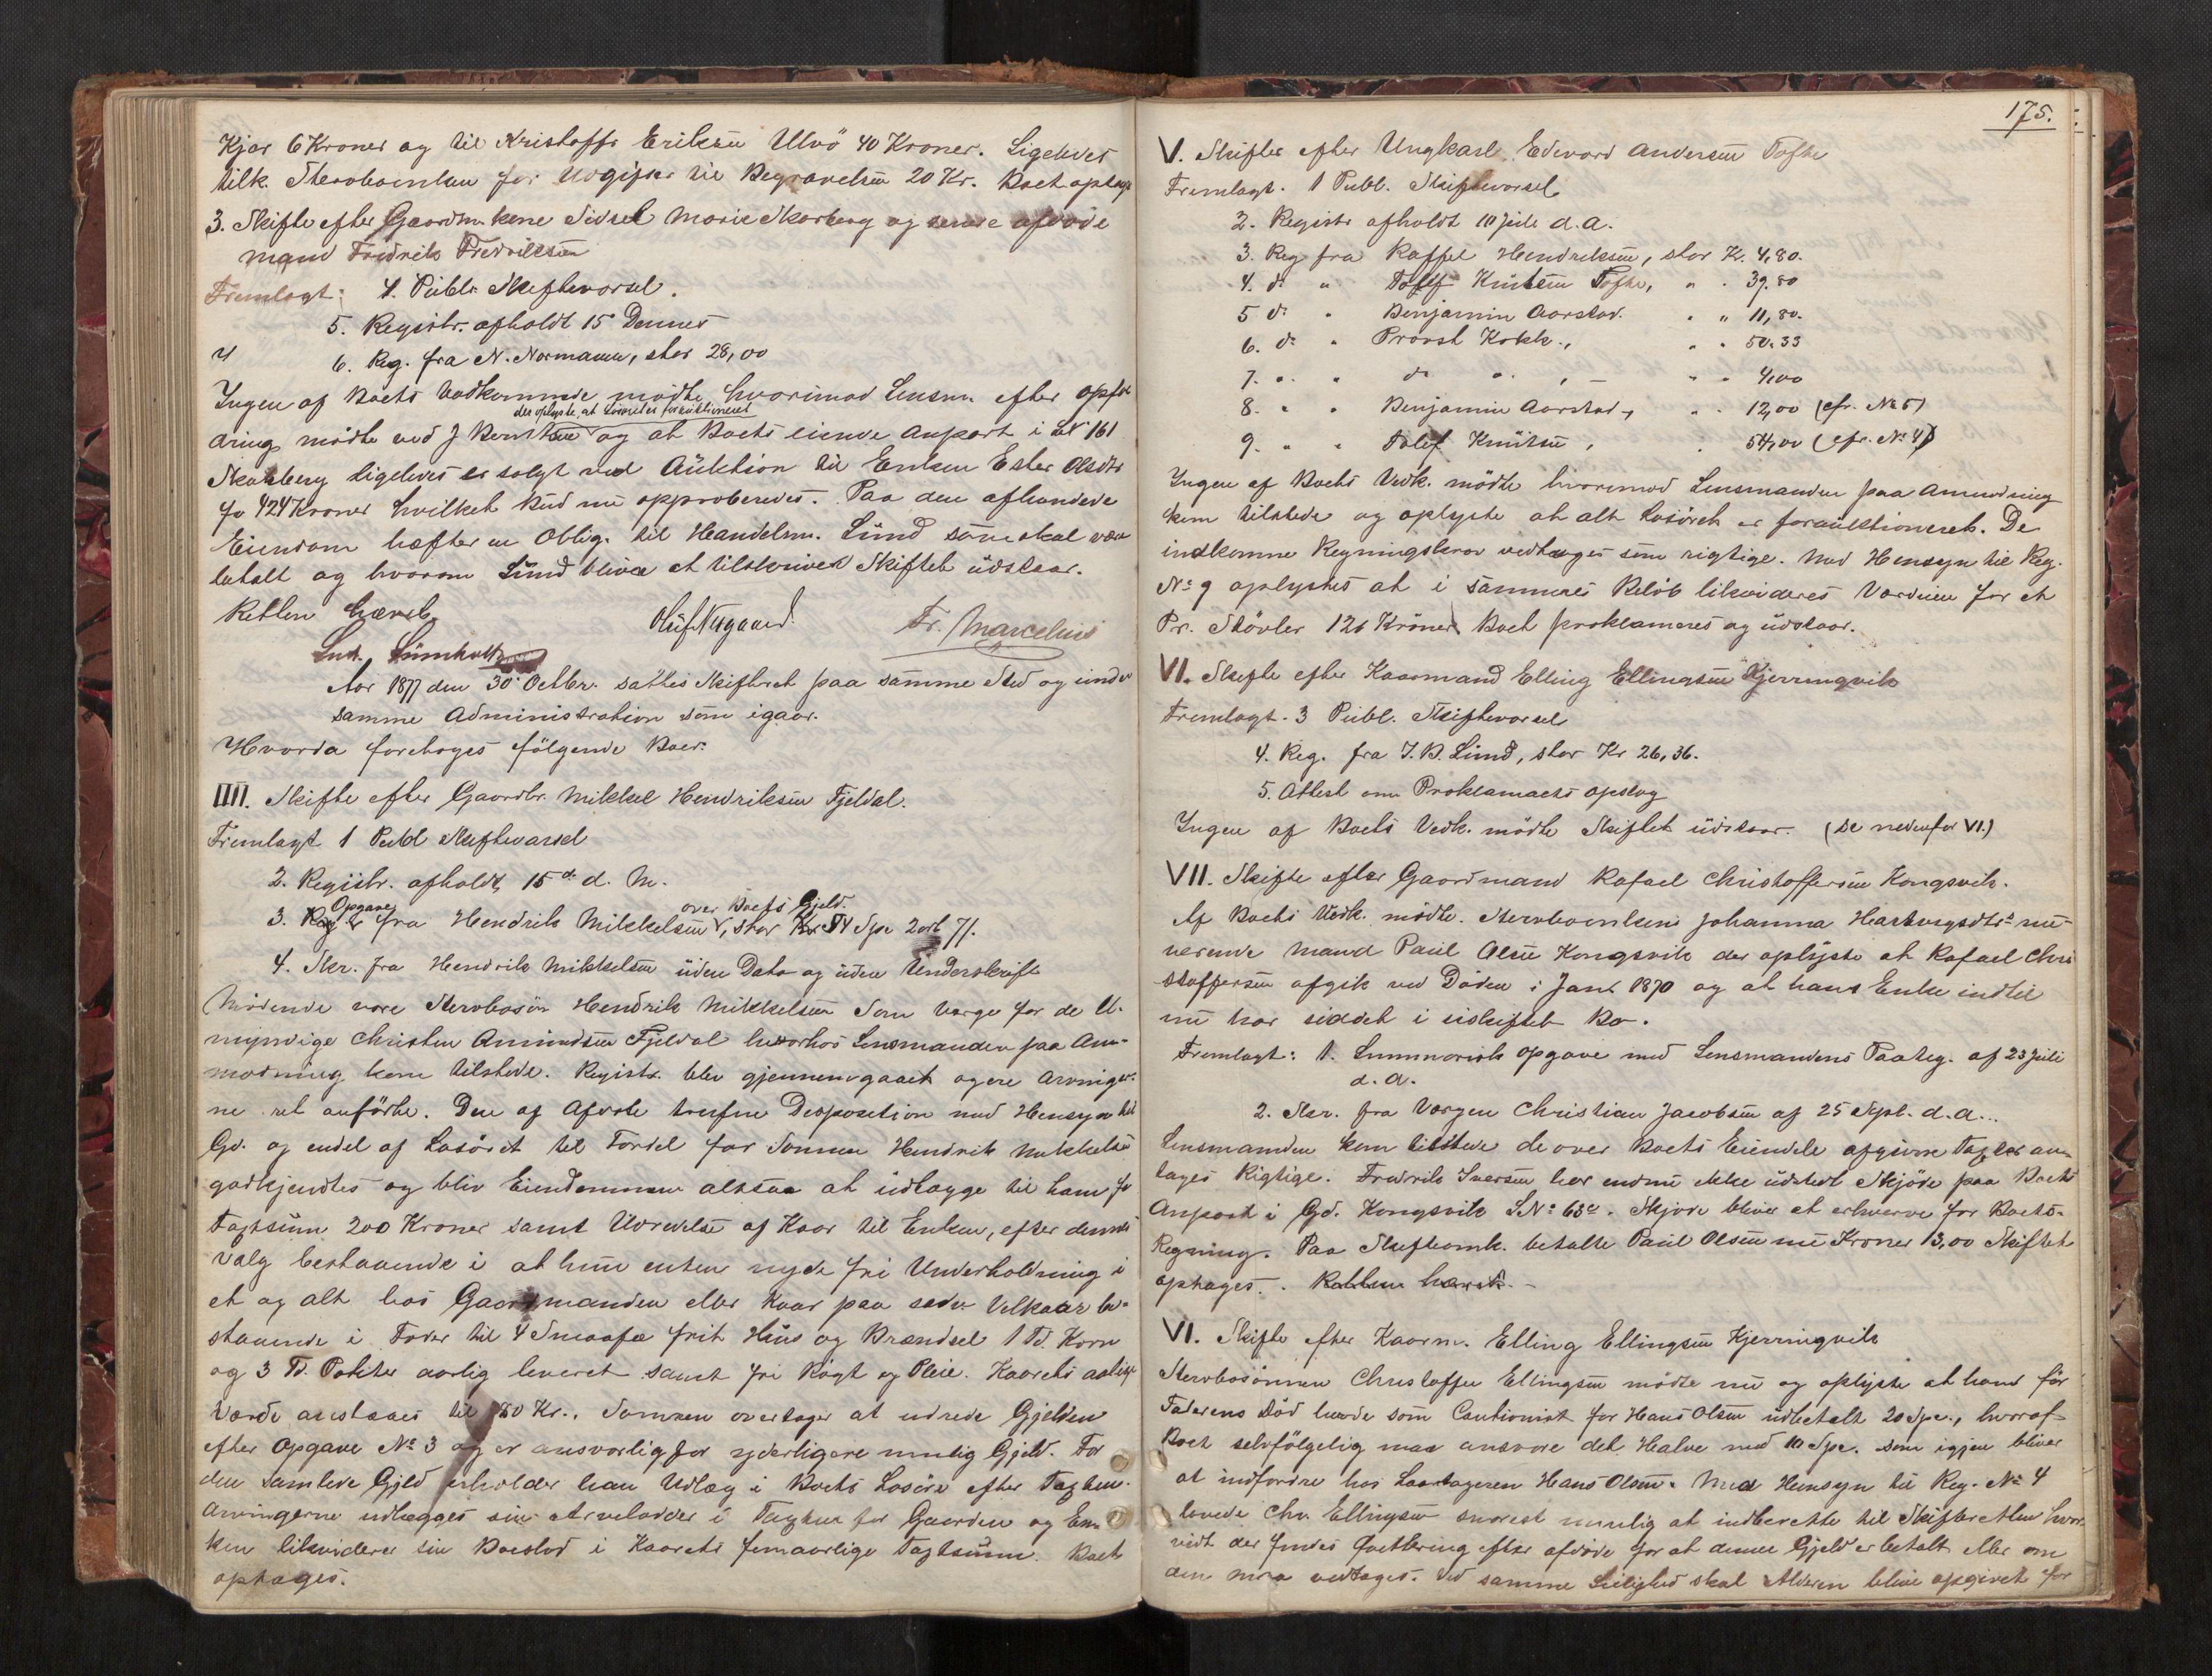 Kjær 6 Kroner og til Kristoffer Eriksen Ulvö 40 Kroner. Ligeledes
tilk. Stervboenken for Udgifter til Begravelsen 20 Kr. Boet optages
3. Skifte efter Gaardm. kone Sidsel Marie Skarberg og senere afdöde
mand Fredrik Fredriksen
Fremlagt: 4. Publ. Skiftevarsel.
5. Registr. afholdt 15 Dennes
6. Reg. fra N. Normann, stor 28,00
Ingen af Boets Vedkommende mödte hvorimod Lensm. efter opfor
der oplyste at Lösöret er forauktioneret
dring mödte ved J Berntsen og at Boets eiende Anpart i LN 161
Skarberg ligeledes er solgt ved Auktion til Enken Ester Olsdtr
for 424 Kroner hvilket Bud nu approberedes. Paa den afhændede
Eiendom hæfter en Oblig. til Handelsm. Lund som skal være
betalt og hvorom Lund bliver at tilskrives Skiftet udstaar.
Retten hævet.
Oluf Nygaard. Fr. Marcelius
Lud. Sumholt
Aar 1877 den 30 Octbr. sattes Skifteret paa samme Sted og under
samme Administration som igaar.
Hvorda foretoges fölgende Boer:
IIII. Skifte efter Gaardbr. Mikkel Hendriksen Fjeldal.
Fremlagt 1 Publ Skiftevarsel
2. Registr. afholdt 15de d. M.
Opgave over Boets Gjeld.
3. Reg fra Hendrik Mikkelsen, stor 74 Spe 2 ort 7 s.
4. Skr. fra Hendrik Mikkelsen uden Dato og uden Underskrift
Mödende vare Stervbosön Hendrik Mikkelsen Som Verge for de U-
myndige Christen Amundsen Fjeldal hvorhos Lensmanden paa An-
modning kom tilstede. Registr. blev gjennemgaaet og ere Arvinger-
ne ret anförte. Den af Afdöde trufne Desposition med Hensyn til
Gd. og endel af Lösöret til Fordel for Sönnen Hendrik Mikkelsen
godkjendtes og bliv Eiendommen altsaa at udlægge til ham for
Taxtsum 200 Kroner samt Udredelse af Kaar til Enken, efter dennes
Valg bestaaende i at hun enten nyder fri Underholdning i
et og alt hos Gaardmanden eller Kaar paa sedv Velkaar be-
staaende i Foder til 4 Smaafæ frit Hus og Brændsel 1 Td. Korn
og 3 Td. Poteter aarlig leveret samt fri Rögt og Pleie. Kaarets aarlige
Værdi ansættes til 80 Kr.. Sönnen overtager at udrede Gjelden
efter Opgave No 3 og er ansvarlig for yderligere mulig Gjeld. For
den samlede Gjeld erholder han Udlæg i Boets Lösöre efter Taxten.
Arvingerne udlægges sine Arvelodder i Taxten for Gaarden og En-
ken likviderer sin Boeslod i Kaarets femaarlige Taxtsum. Boet
optages.
175.
V. Skifte efter Ungkarl Edevard Andersen Tofte
Fremlagt. 1 Publ. Skiftevarsel
2. Registr afholdt 10 Juli d.a.
3. Reg fra Raffel Hendriksen, stor Kr. 4,80.
4. do " Tollef Knutsen Tofte, " . 39.80
5 do " Benjamin Aarstad. " " 11,80.
6. do " Provst Kokk., " . 50.33
7. " " do " , - " . 4,00
8. " " Benjamin Aarstad, " . 12,00 (cfr. No 5)
9. " " Tolef Knutsen, . 54,00 (cfr. No 4)
Ingen af Boets Vedk. mödte hvorimod Lensmanden paa Anmodning
kom tilstede og oplyste at alt Lösöret er forauktioneret. De
indkomne Regningskrav vedtoges som rigtige. Med Hensyn til Reg.
No 9 oplystes at i sammes Belöb likvideres Værdien for et
Pr. Stövler 12 6 Kroner Boet proklameres og udstaar.
VI. Skifte efter Kaarmand Elling Ellingsen Kjerringvik
Fremlagt. 3 Publ. Skiftevarsel
4. Reg. fra J. B. Lund, stor Kr 26,36.
5. Attest om Proklamaets opslag
Ingen af Boets Vedk. mödte Skiftet udstaar. (Se nedenfor VI.)
VII. Skifte efter Gaardmand Rafael Christoffersen Kongsvik.
Af Boets Vedk. mödte. Stervboenkens Johanna Hartvigsdtrs nu-
værende Mand Paul Olsen Kongsvik der oplyste at Rafael Chri
stoffersen afgik ved Döden i Jan. 1870 og at hans Enke indtil
nu har siddet i uskiftet Bo.
Fremlagt: 1. Summarisk Opgave med Lensmandens Paateg. af 23 Juli
d.a.
2. Skr. fra Vergen Christian Jacobsen af 25 Sept. d.a..
Lensmanden kom tilstede de over Boets Eiendele afgivne Taxter an-
tages Rigtige. Fredrik Iversen har endnu ikke udstedt Skjöde paa Boets
Anpart i Gd. Kongsvik LNo 63a. Skjöde bliver at erhverve for Boets
Regning. Paa Skifteomk. betalte Paul Olsen nu Kroner 13,00 Skiftet
optages. Retten hævet.
VI. Skifte efter Kaarm. Elling Ellingsen Kjerringvik
Stervbosönnen Christoffer Ellingsen mödte nu og oplyste at hans för
Faderens Död havde som Cautionist for Hans Olsen udbetalt 20 Spe., hvoraf
Boet selvfölgelig maa ansvare det Halve med 10 Spe. som igjen bliver
at indfordre hos Laantageren Hans Olsen. Med Hensyn til Reg. No 4
lovede Chr. Ellingsen snarest mulig at indberette til Skifteretten hvor
vidt der findes Qvittering efter afdöde for at denne Gjeld er betalt eller om
den maa vedtages. Ved samme Leilighed skal Alderen blive opgivet for